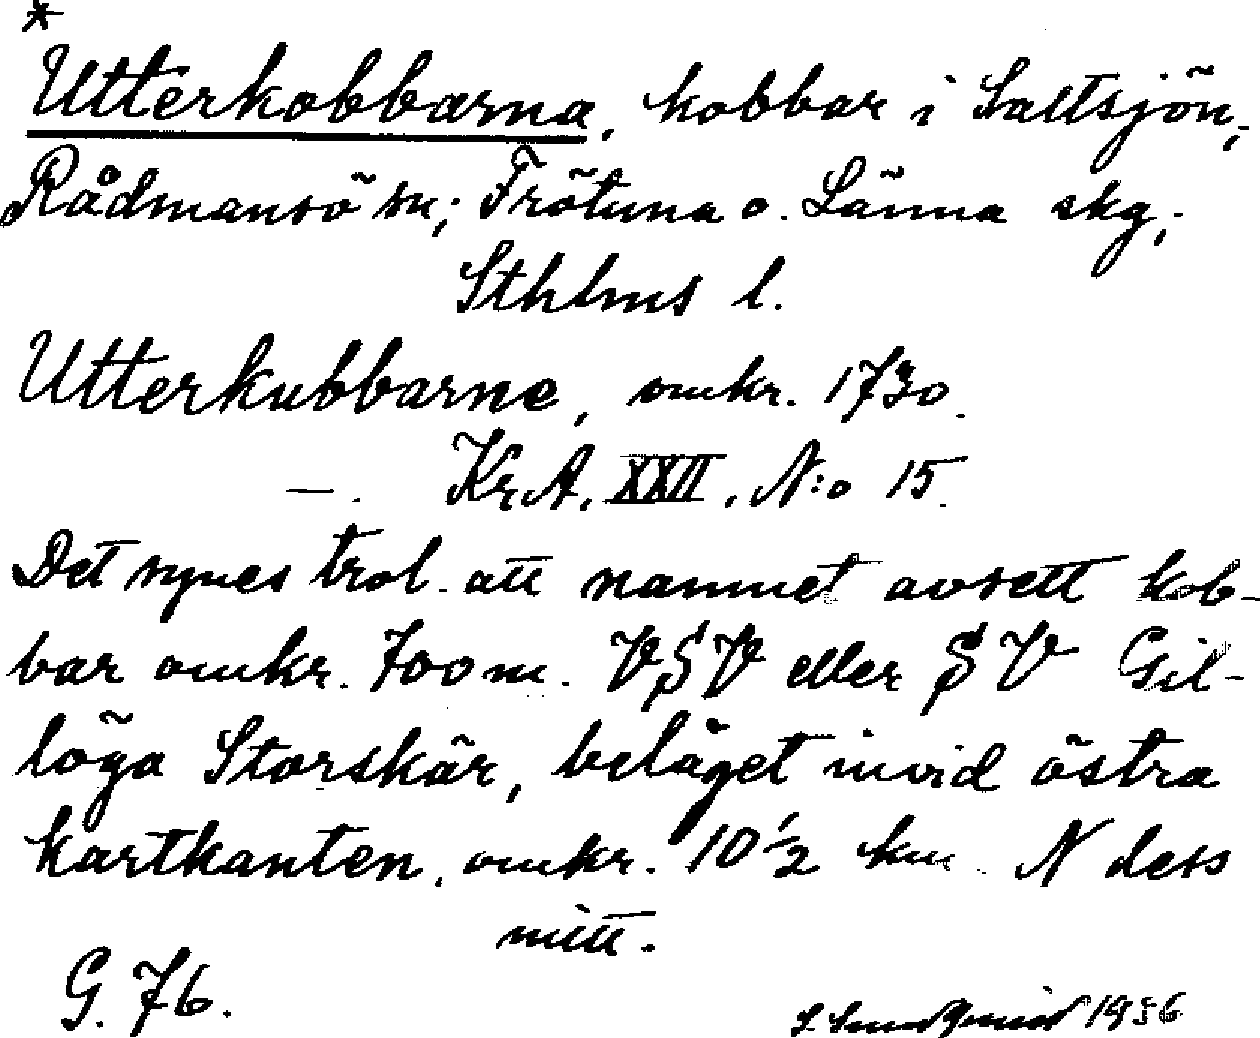 *
Utterkobbarna, kobbar i Saltsjön,
Rådmansö sn; Frötuna o. Länna skg,
Sthlms l.
Utterkubbarne, omkr. 1730.
—. Kr.A. XXII, N:o 15.
Det synes trol. att namnet avsett kob-
bar omkr. 700 m. VSV eller SV Gil-
löga Storskär, beläget invid östra
kartkanten, omkr. 10 1/2 km N dess
mitt.
G. 76.
1936